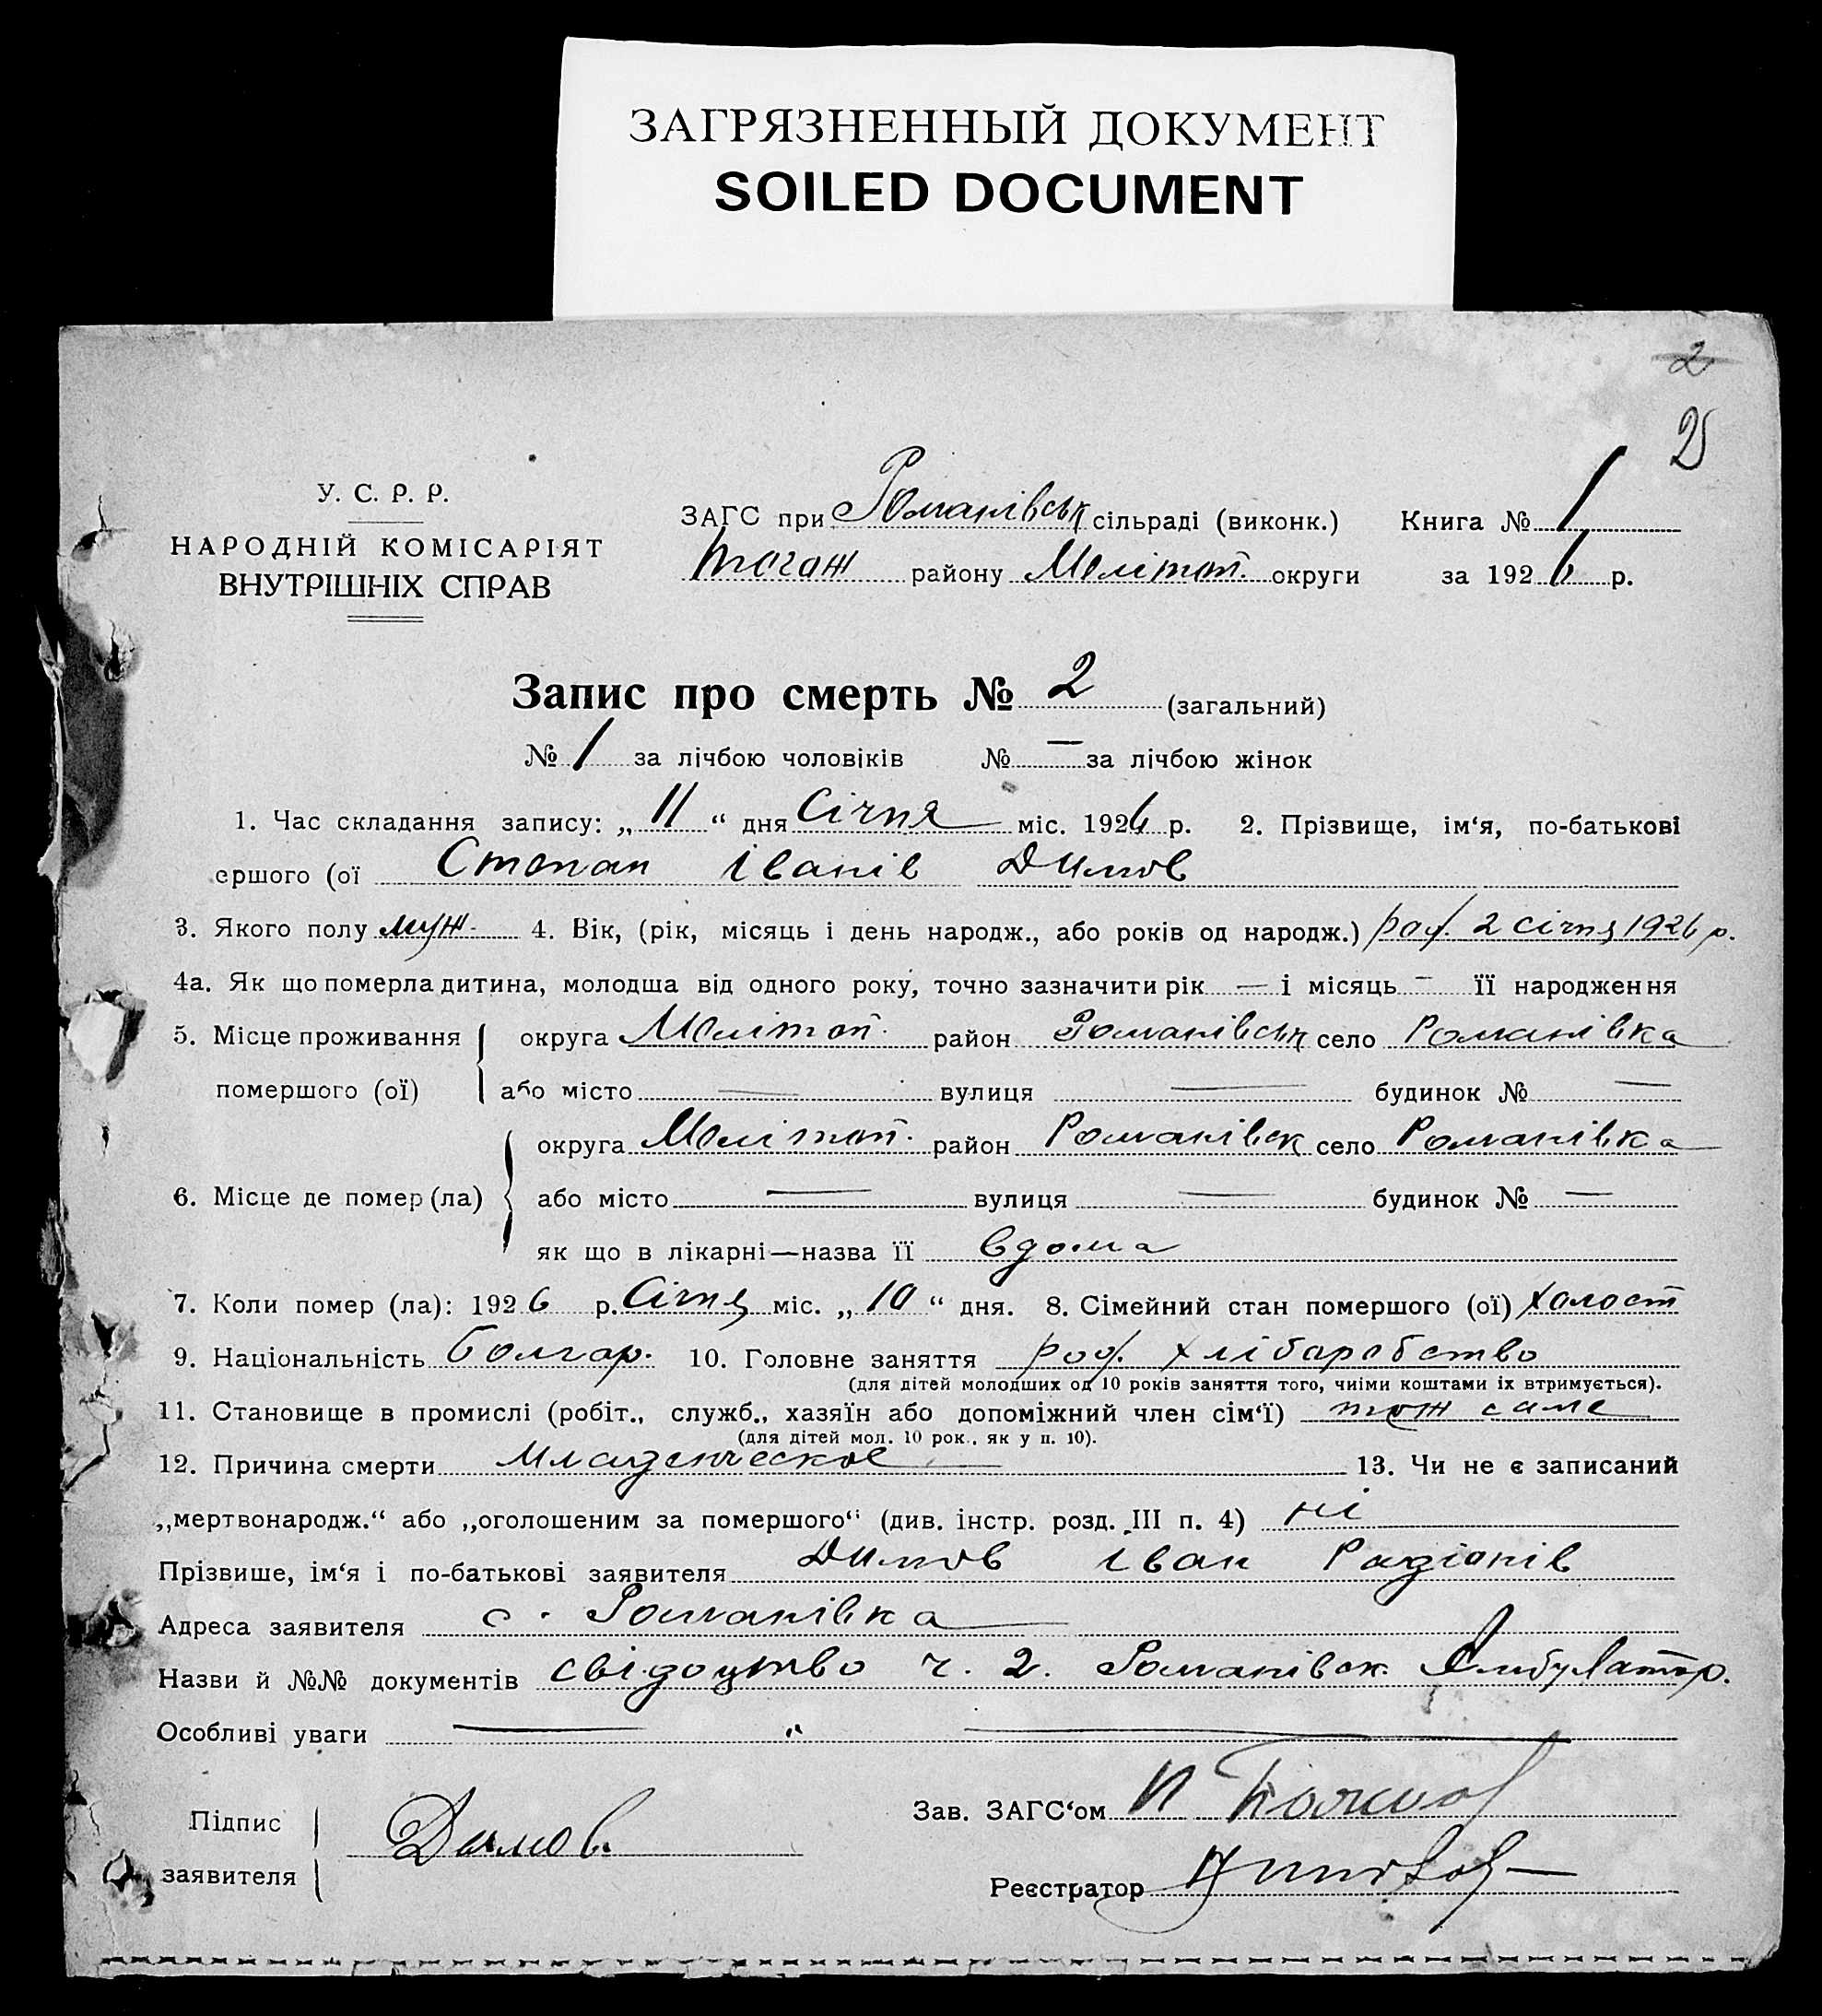 ЗАГРЯЗНЕННЫЙ ДОКУМЕНТ
SOILED DOCUMENT
2
2
У. С. Р. Р.
НАРОДНІЙ КОМІСАРІЯТ
ВНУТРІШНІХ СПРАВ
ЗАГС при Романівськ сільраді (виконк.) Книга № 1
тогож району Мелітоп. округи за 1926 р.
Запис про смерть № 2 (загальний)
№ 1 за лічбою чоловіків № — за лічбою жінок
1. Час складання запису: „ 11 “ дня Січня міс. 1926 р. 2. Прізвище, ім‘я, по-батькові
ершого (ої Степан Іванів Димов
3. Якого полу муж. 4. Вік, (рік, місяць і день народж., або років од народж.) род. 2 січня 1926 р.
4а. Як що померла дитина, молодша від одного року, точно зазначити рік — і місяць — її народження
5. Місце проживання округа Мелітоп. район Романівськ село Романівка
помершого (ої) або місто — вулиця — будинок № —
округа Мелітоп. район Романівск село Романівка
6. Місце де помер (ла) або місто — вулиця — будинок № —
як що в лікарні—назва її вдома
7. Коли помер (ла): 1926 р. Січня міс. „ 10 “ дня. 8. Сімейний стан помершого (ої) холост
9. Національність болгар. 10. Головне заняття род. хліборобство
(для дітей молодших од 10 років заняття того, чиїми коштами їх втримується).
11. Становище в промислі (робіт., служб., хазяїн або допоміжний член сім‘ї) тож саме
(для дітей мол. 10 рок., як у п. 10).
12. Причина смерти Младенческое 13. Чи не є записаний
„мертвонародж.“ або „оголошеним за помершого“ (див. інстр. розд. III п. 4) ні
Прізвише, ім‘я і по-батькові заявителя Димов Іван Радіонів
Адреса заявителя с. Романівка
Назви й №№ документів свідоцтво ч. 2. Романівск. Амбулатор.
Особливі уваги — " —
Підпис
заявителя Димов.
Зав. ЗАГС‘ом
Реєстратор